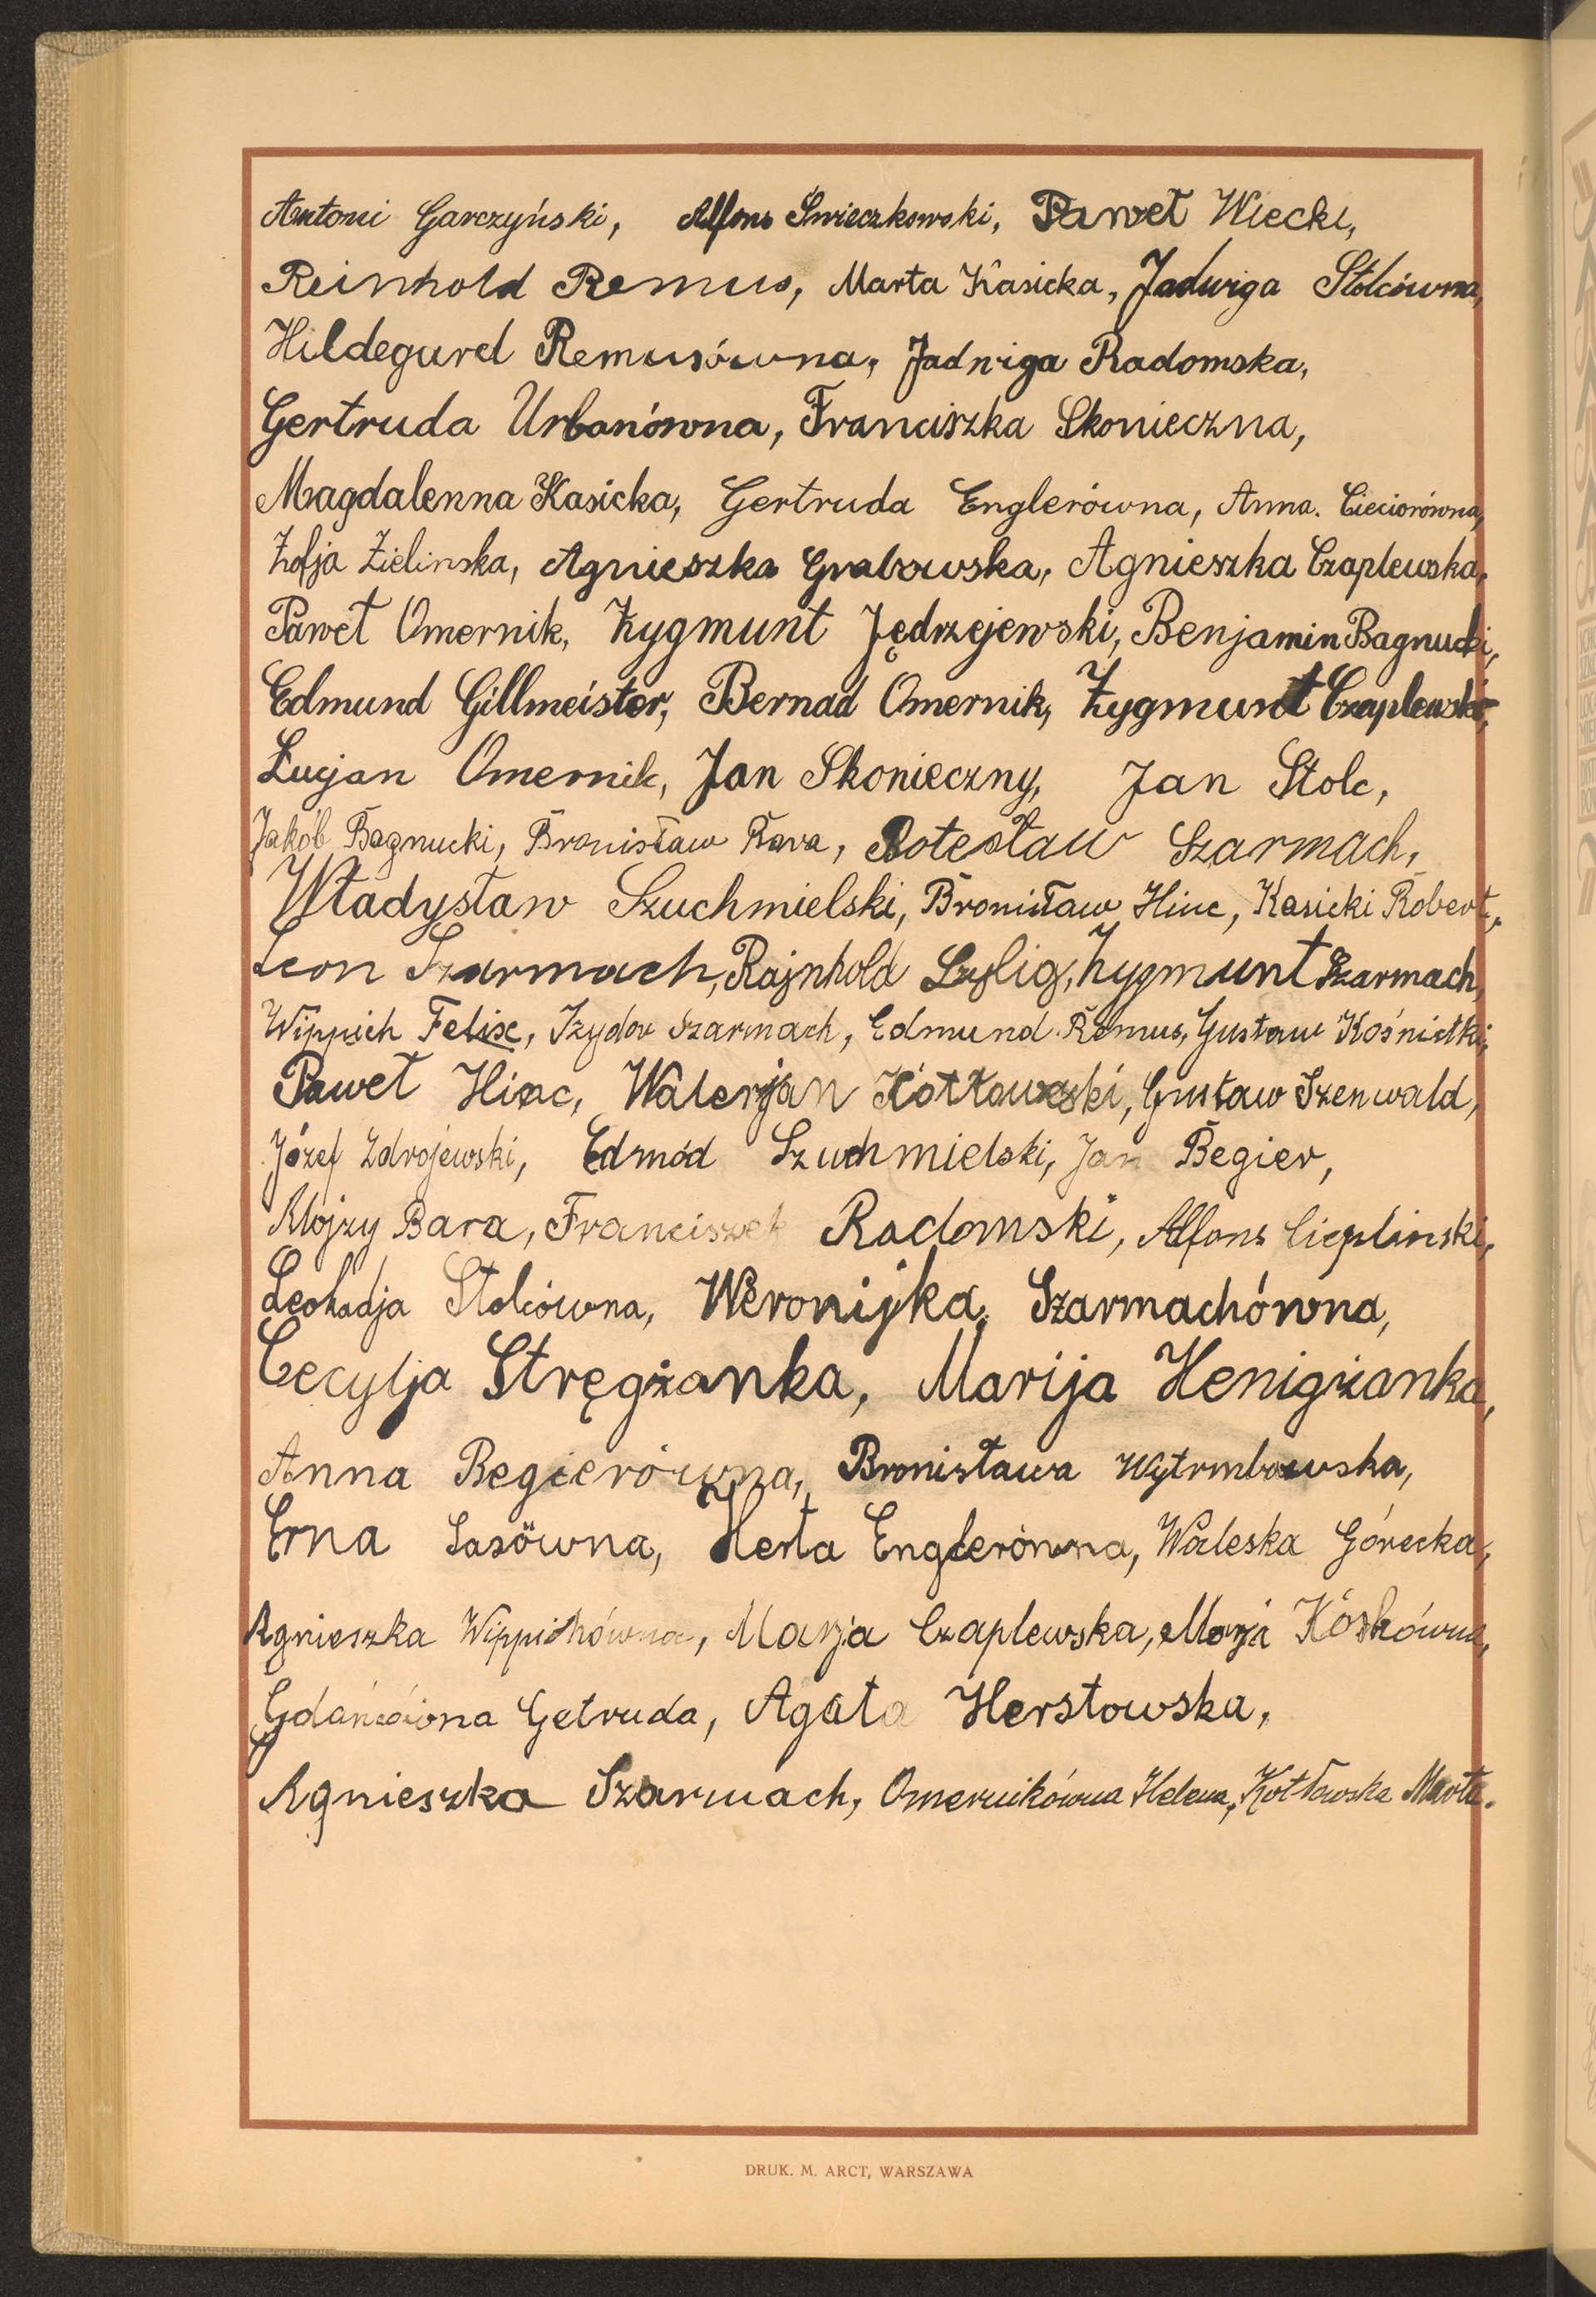 Antoni Garczyński, Alfons Świeczkowski, Paweł Wiecki,
Reinhold Remus, Marta Kasicka, Jadwiga Stolcówna,
Hildegard Remusówna, Jadwiga Radomska,
Gertruda Urbanówna, Franciszka Skonieczna,
Magdalenna Kasicka, Gertruda Englerówna, Anna. Cieciorówna,
Zofja Zielinska, Agnieszka Grabowska, Agnieszka Czaplewska,
Paweł Omernik, Zygmunt Jędrzejewski, Benjamin Bagnucki,
Edmund Gillmeister, Bernad Omernik, Zygmunt Czaplewski,
Lucjan Omernik, Jan Skonieczny, Jan Stolc,
Jakób Bagnucki, Bronisław Bara, Bolesław Szarmach,
Władysław Szuchmielski, Bronisław Hinc, Kasicki Robert,
Leon Szarmach, Rajnhold Szylig, Zygmunt Szarmach,
Wippich Felix, Izydor Szarmach, Edmund Remus, Gustaw Kośnicki,
Paweł Hinc, Walerjan Kotłowski, Gustaw Szenwald,
Józef Zdrojewski, Edmód Szuchmielski, Jan Begier,
Alojzy Bara, Franciszek Radomski, Alfons Cieplinski,
Leokadja Stolcówna, Weronijka Szarmachówna,
Cecylja Stręgżanka, Marija Henigżanka,
Anna Begierówna, Bronisława Wytrmbowska,
Erna Sasówna, Herta Englerówna, Waleska Górecka,
Agnieszka Wippichówna, Marja Czaplewska, Marja Kóskówna,
Gdańcówna Getruda, Agata Herstowska,
Agnieszka Szarmach, Omernikówna Helena, Kotłowska Marta.
DRUK. M. ARCT, WARSZAWA